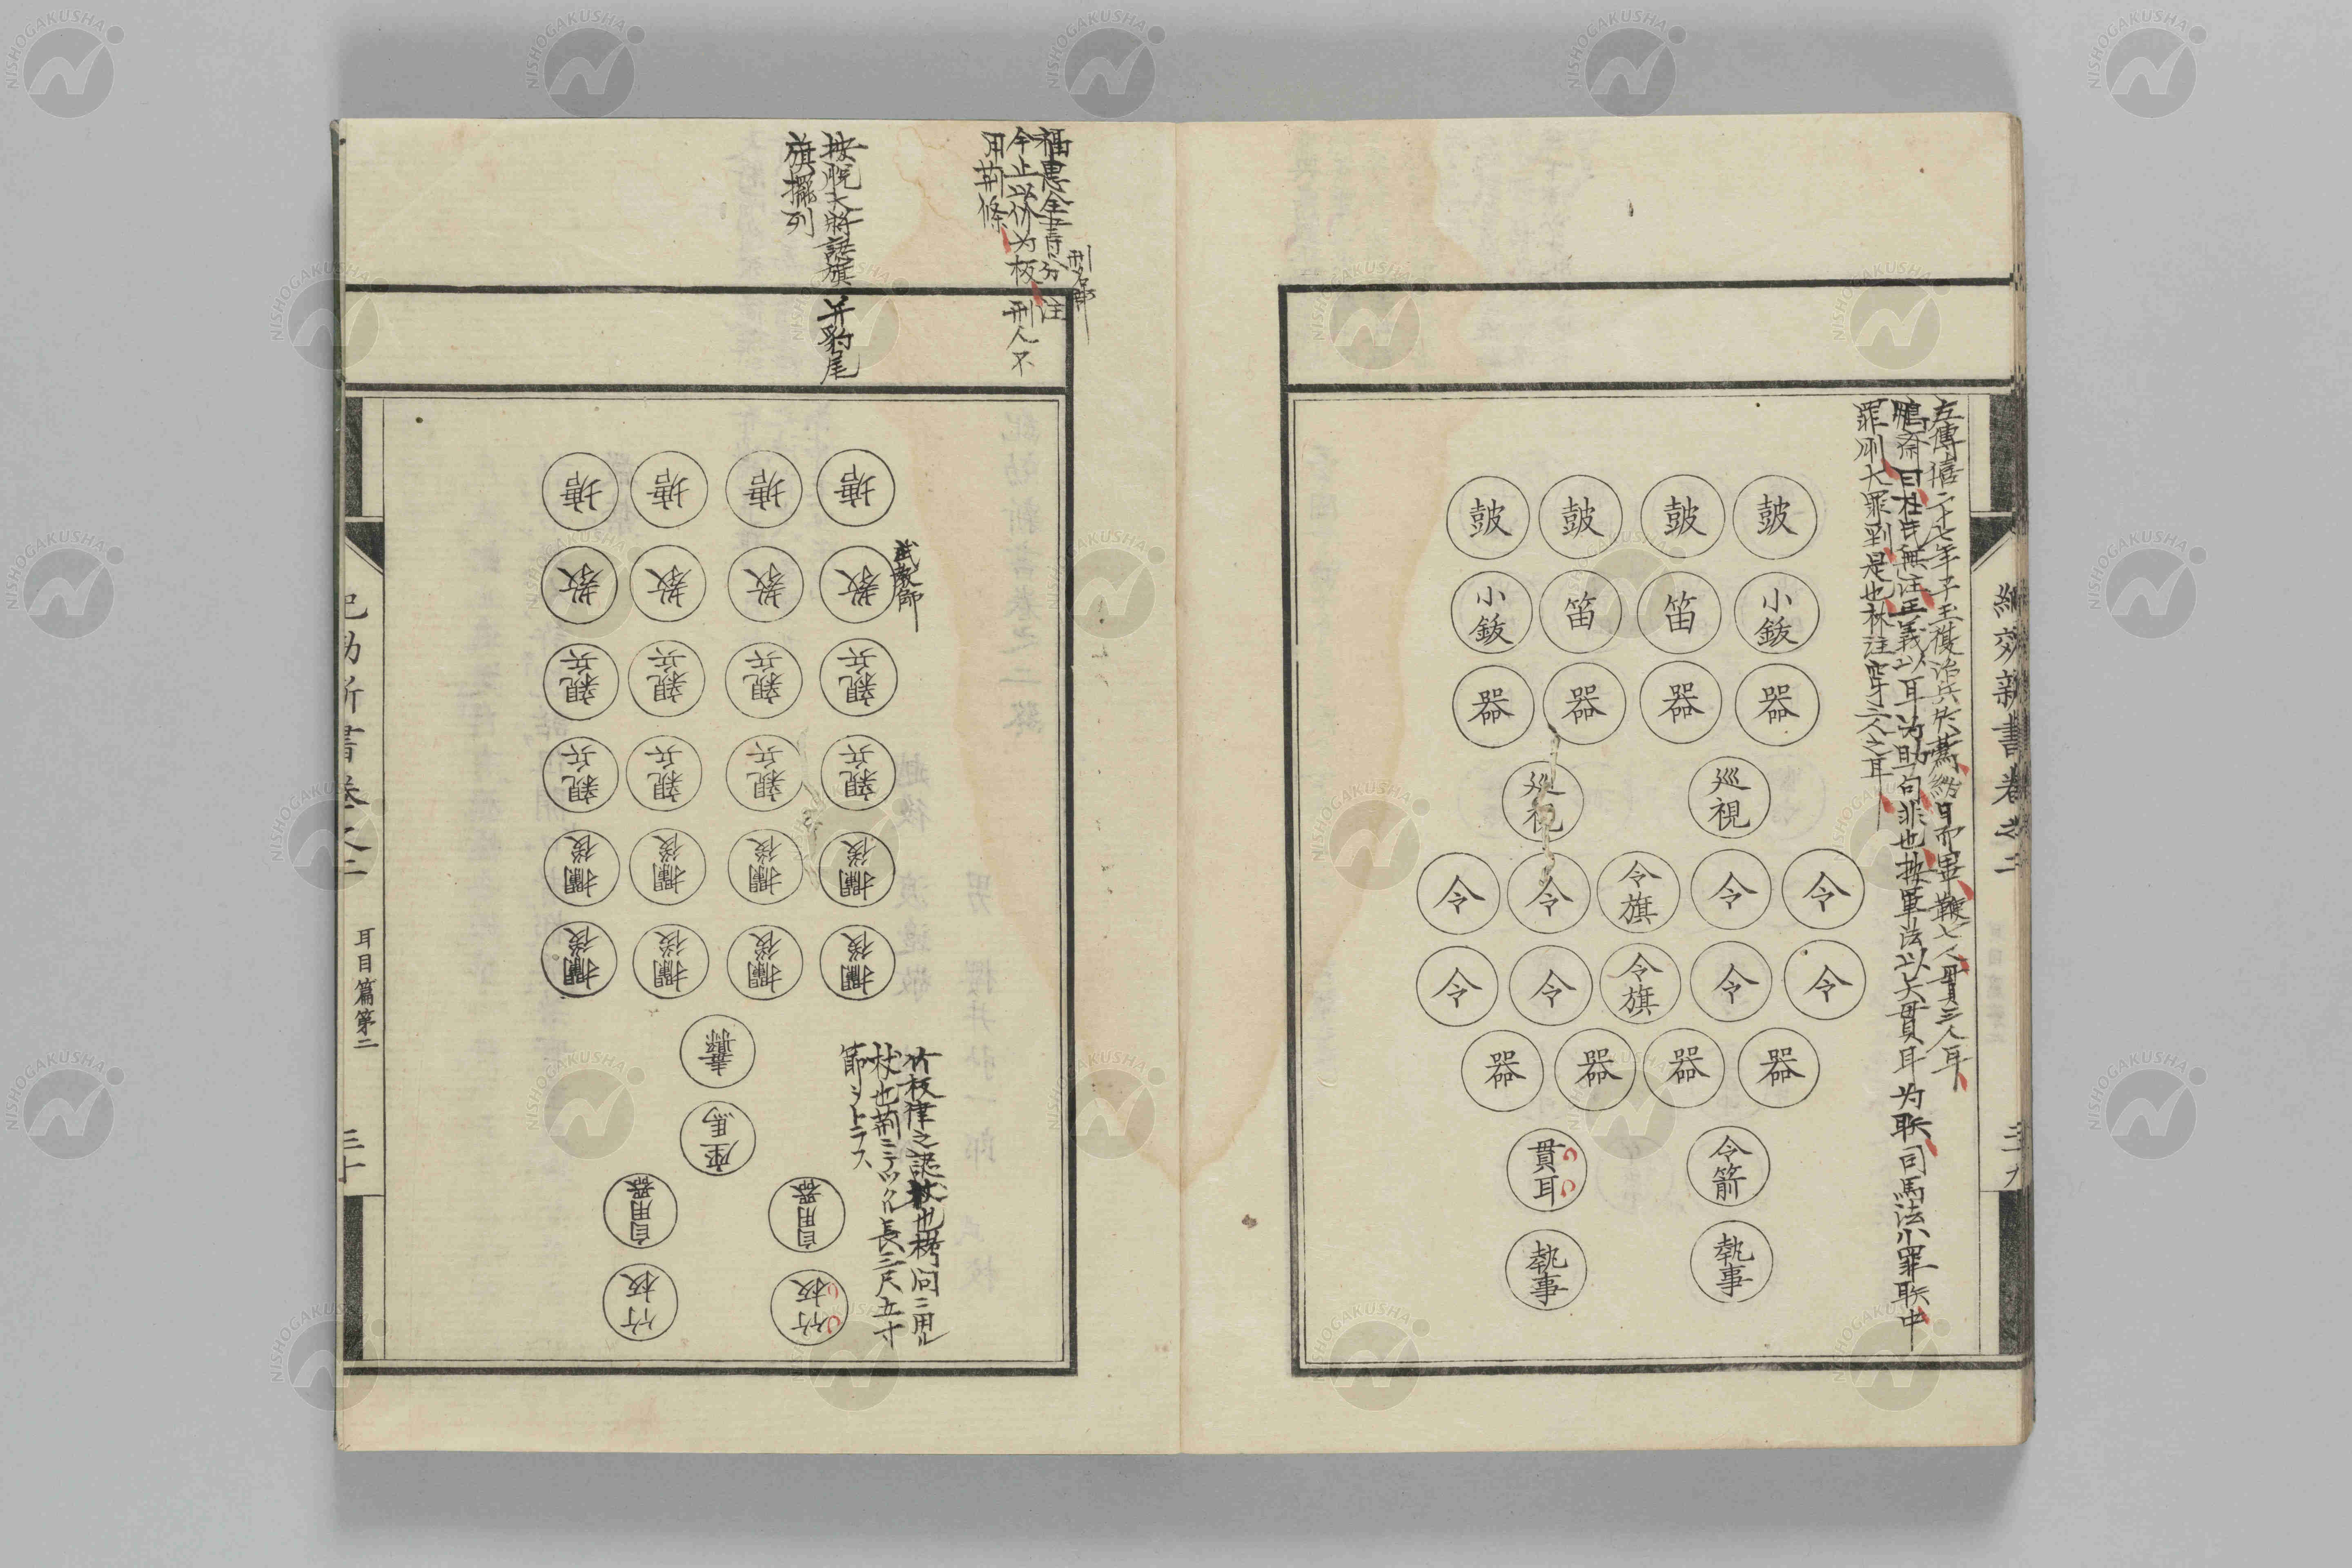 紀效新書卷之二
三九
左傳僖二十七年子玉復治兵於蔿終日而畢鞭七人貫三人耳
鵬齋曰杜氏無注正義以耳为助句非也按軍法以矢貫耳为聅司馬法小罪聅中
罪刖大罪剄是也林注穿三人之耳
皷 皷 皷 皷
小鈸 笛 笛 小鈸
器 器 器 器
巡視 巡視
令 令 令旗 令 令
令 令 令旗 令 令
器 器 器 器
令箭 貫耳
執事 執事
刑名部
福惠全書 分注
今止以竹为板 刑人不
用荆條
按脱大將認旗 并豹尾
旗擺列
塘 塘 塘 塘
教 教 教 教
武教師
親兵 親兵 親兵 親兵
親兵 親兵 親兵 親兵
攔後 攔後 攔後 攔後
攔後 攔後 攔後 攔後
纛
座馬
自用器 自用器
竹板 竹板
竹板律之 杖也 问ニ用ル
杖也荆ニテツクル長三尺五寸
節ヲトラス
紀効新書卷之二
耳目篇第二
三十
NISHOGAKUSHA